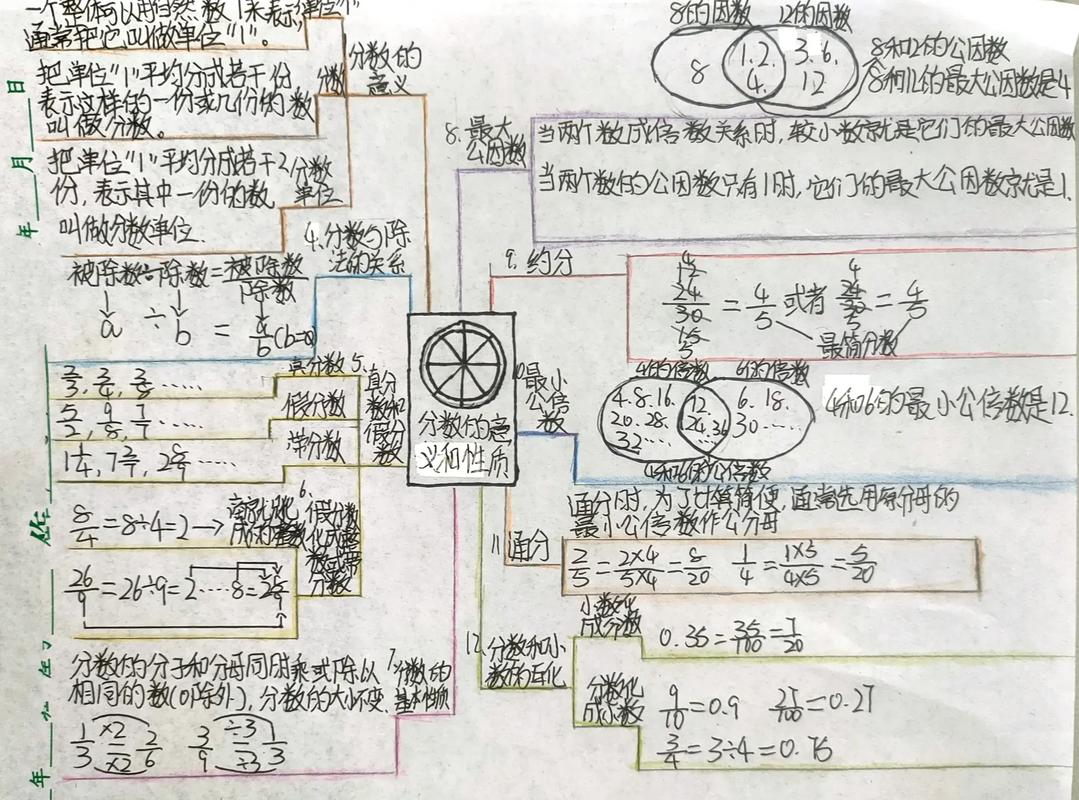 一个整体可以用自然数1来表示,
通常把它叫做单位"1"。
分数的
意义
把单位"1"平均分成若干份
表示这样的一份或几份的数
叫做分数。
分数
把单位"1"平均分成若干
份,表示其中一份的数
叫做分数单位.
2分数
单位
4.分数与除
法的关系
被除数÷除数=被除数/除数
a ÷ b = a/b(b=0)
5.真分
数和
假分
数
真分数
2/3, 3/4,
假分数
5/2, 9/8, 7/7
带分数
6.假分数
化成整
数或带
分数
8/4=8÷4=2→
26/9=26÷9=2……8=2 8/9
7.分数的
基本性质
分数的分子和分母同时乘或除以
相同的数(0除外),分数的大小不变.
1/3 ×2 = ×2 2/6
3/9 ÷3 = ÷3 1/3
分数的意
义和性质
8.最大
公因数
8的因数 12的因数
8 1.2. 4. 3.6. 12
8和12的公因数
8和12的最大公因数是4
当两个数成倍数关系时,较小数就是它们的最大公因数
当两个数的公因数只有1时,它们的最大公因数就是1.
9.约分
24/30 = 4/5 或者 24/30 = 4/5
最简分数
10最小
公倍
数
4的倍数 6的倍数
4.8.16. 12. 6.18.
20.28. 24.36 30……
32…… ……
4和6的公倍数
4和6的最小公倍数是12.
11通分
通分时,为了计算简便,通常选用原分母的
最小公倍数作公分母
2/5=2×4/5×4=8/20 1/4=1×5/4×5=5/20
12.分数和小
数的互化
小数化
成分数
0.35=35/100=7/20
分数化
成小数
9/10=0.9 27/100=0.27
3/4=3÷4=0.75
年 月 日
年